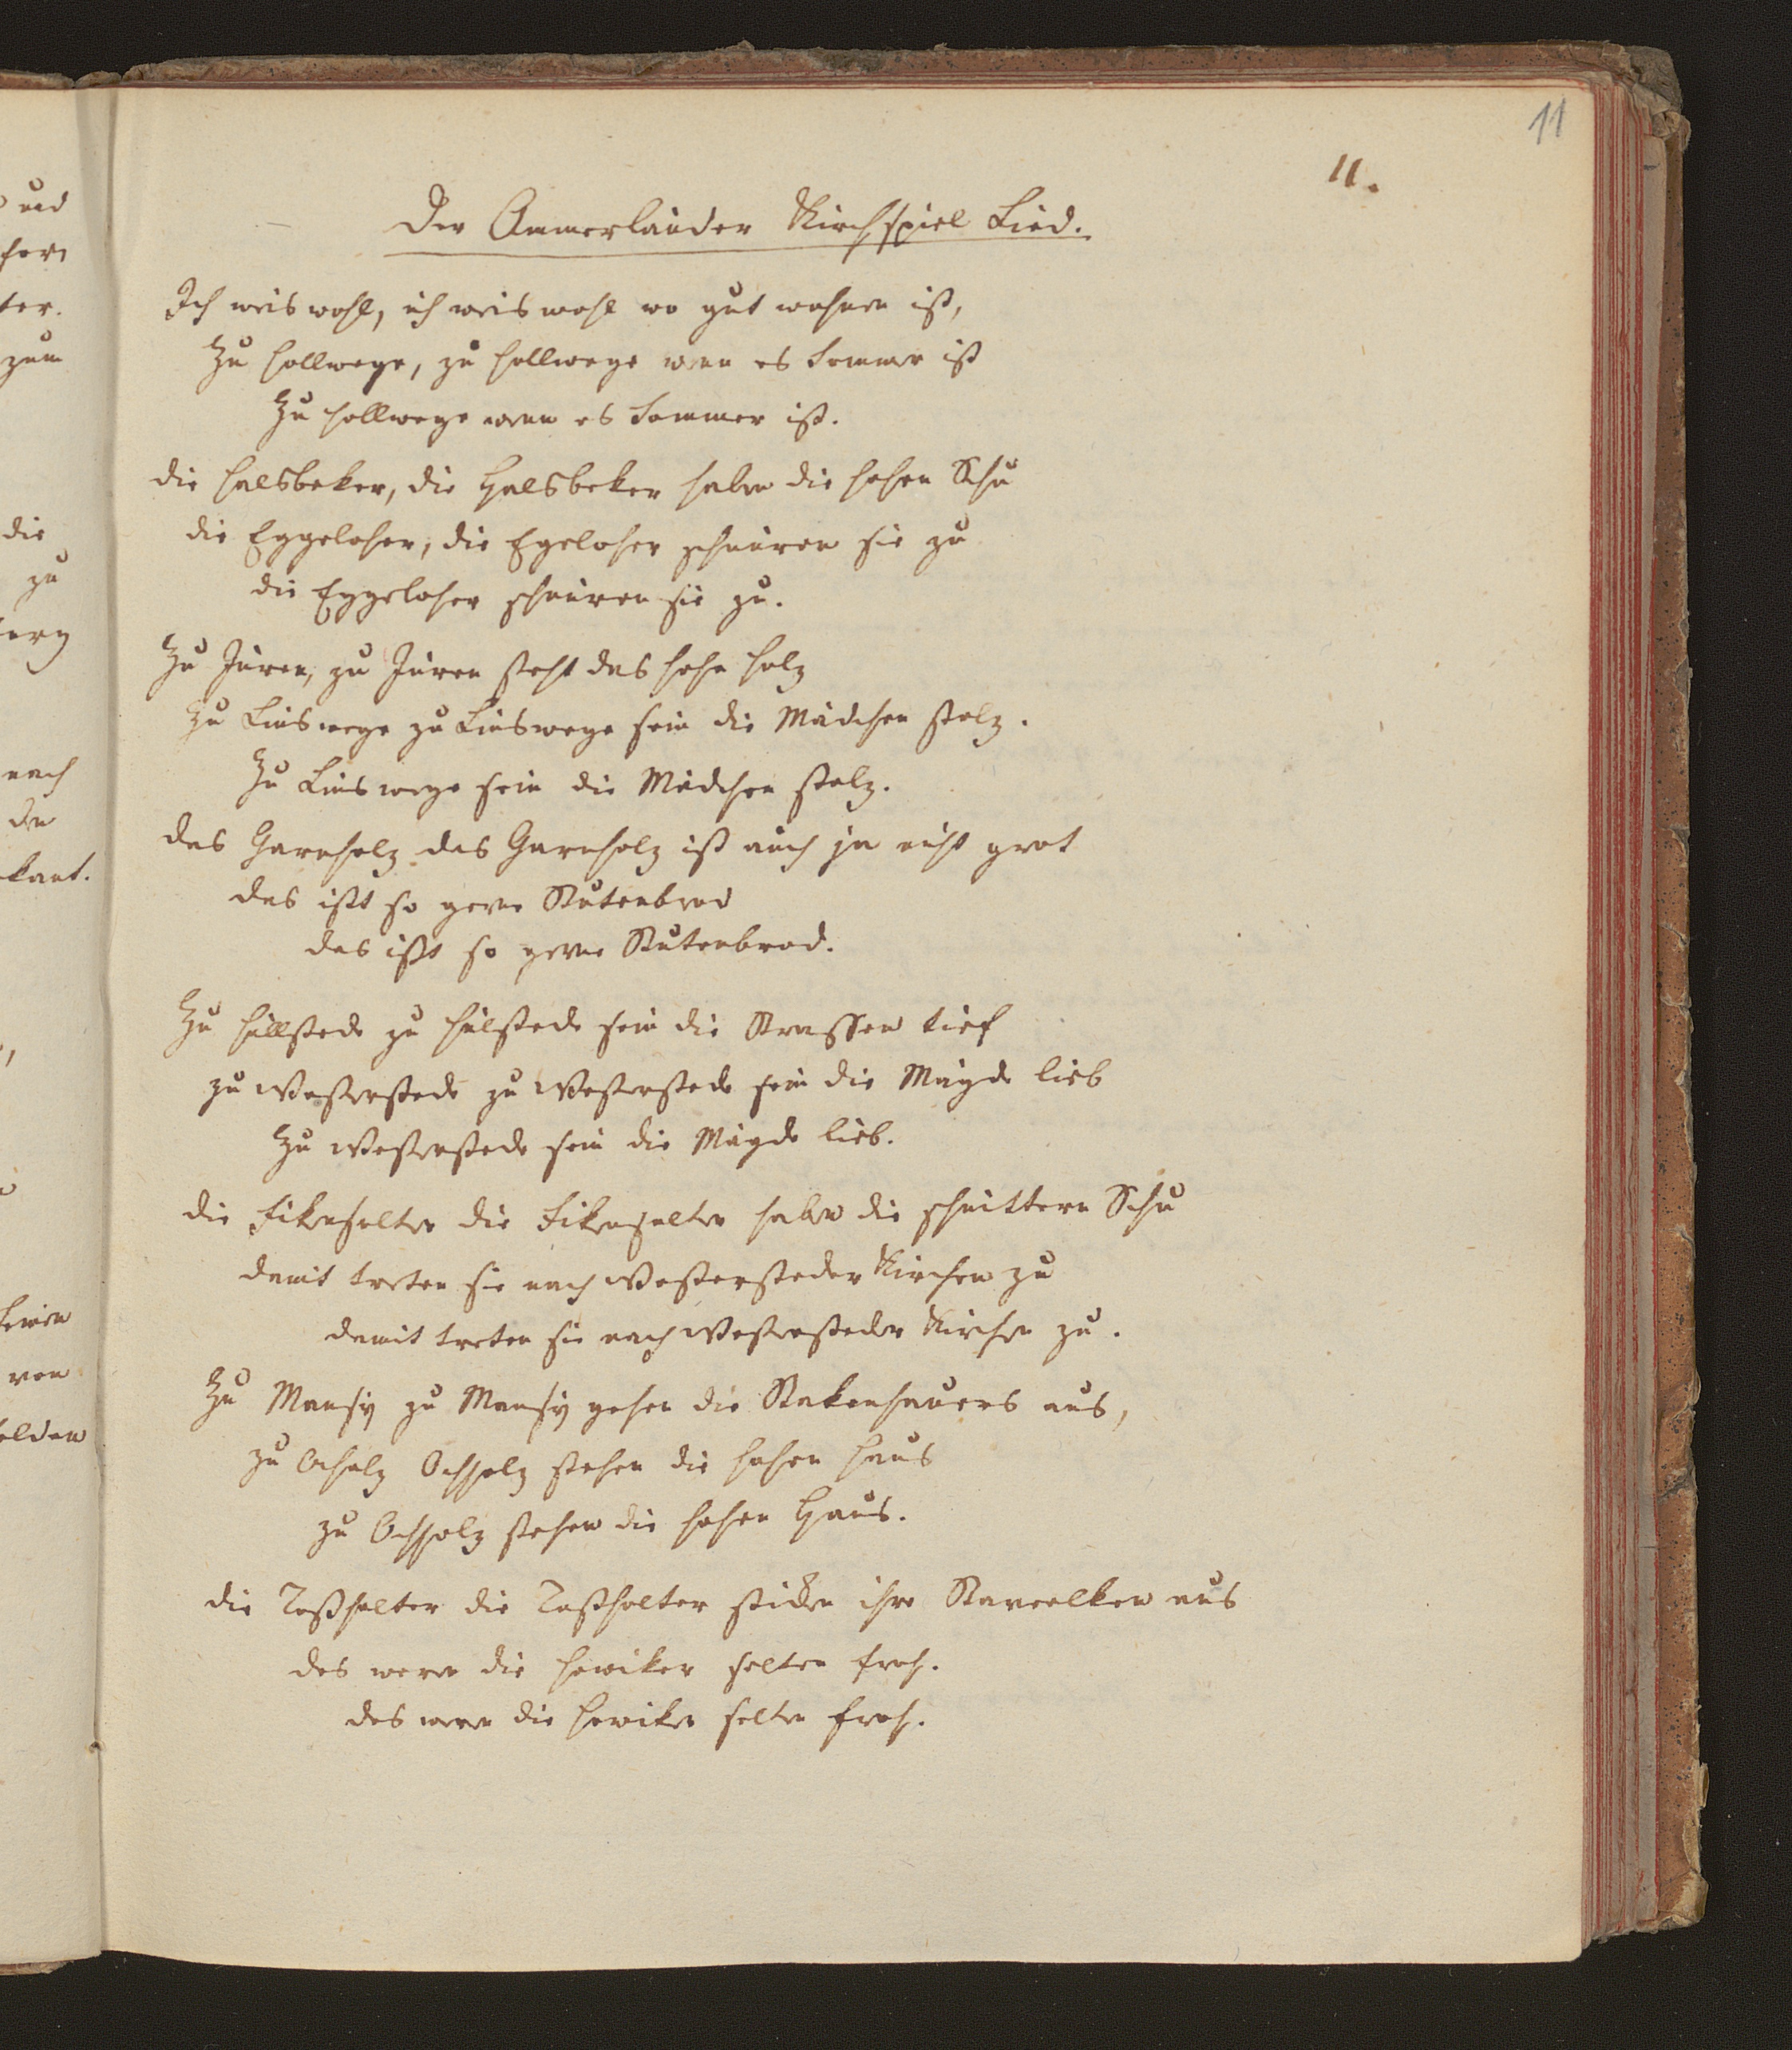 11
11.
Der Ammerländer Kirchspiel Lied.
Ich weis wohl, ich weis wohl wo gut wohnen ist,
Zu Hollwege, zu Hollwege wenn es Sommer ist
Zu Hollwege wenn es Sommer ist.
die Halsbeker, die Halsbeker haben die hohen Schu
die Eggeloher, die Egeloher schnüren sie zu
die Eggeloher schnüren sie zu.
Zu Jüren, zu Jüren steht das hohe Holz
Zu Linswege zu Linswege sein die Mädchen stolz.
Zu Linswege sein die Mädchen stolz.
das Garnholz das Garnholz ist auch ja nicht grot
das isst so gerne Stutenbrod
das isst so gerne Stutenbrod.
Zu Hüllstede zu Hülstede sein die Strassen tief
zu Westerstede zu Westerstede sein die Mägde lieb
Zu Westerstede sein die Mägde lieb.
die Fikenholter die Fikenholter haben die schnittern Schu
damit treten sie nach Westersteder Kirchen zu
damit treten sie nach Westersteder Kirchen zu.
Zu Mansy zu Mansy gehen die Stakenhauers aus,
zu Ocholz Ochholz stehen die hohen Haus
zu Ochholz stehen die hohen Haus.
die Toßholter die Toßholter stiken ihre aus
des weren die Howiker selten froh.
des weren die Howiker selten froh.
und
ter.
zum
die
zu
nach
den
kant.
von